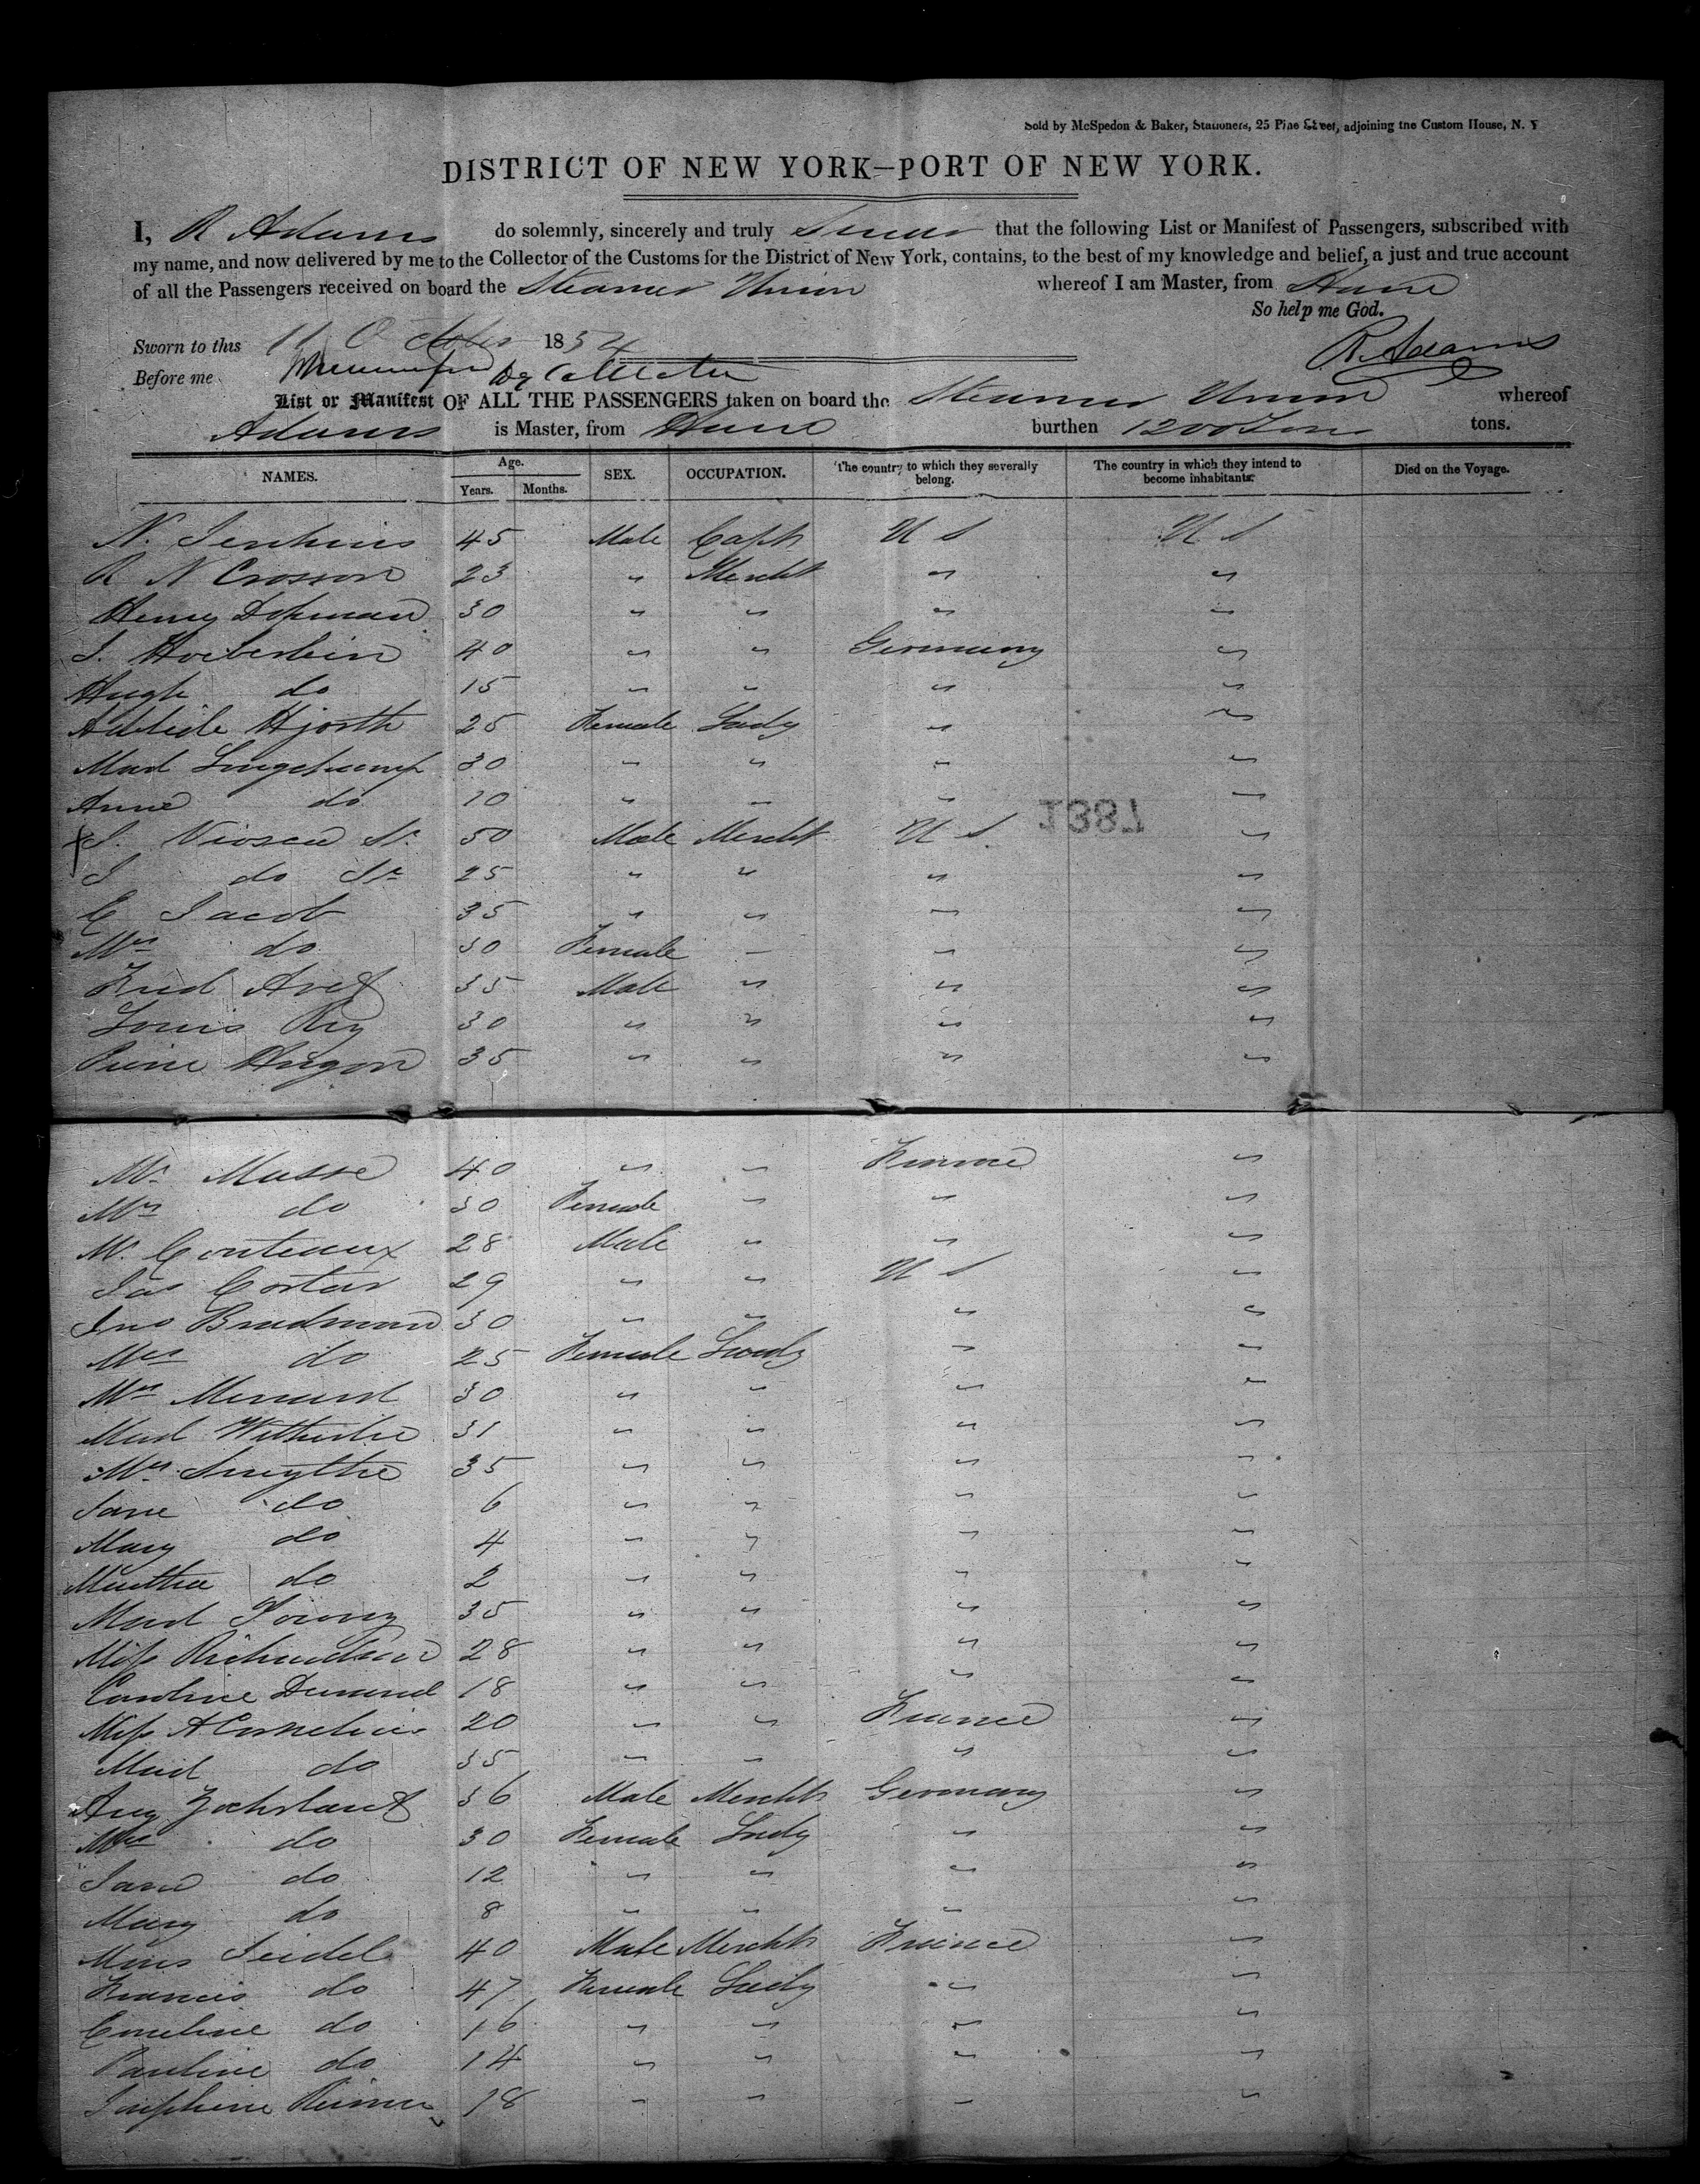 Sold by McSpedon & Baker, Stationers, 25 Pine Street, adjoining the Custom House, N. Y
DISTRICT OF NEW YORK—PORT OF NEW YORK.
I, R Adams do solemnly, sincerely and truly Swear that the following List or Manifest of Passengers, subscribed with
my name, and now delivered by me to the Collector of the Customs for the District of New York, contains, to the best of my knowledge and belief, a just and true account
of all the Passengers received on board the Steamer Union whereof I am Master, from Havre
So help me God.
Sworn to this 11 October 1854
R. Adams
Before me Dy Collector
List or Manifest OF ALL THE PASSENGERS taken on board the Steamer Union whereof
Adams is Master, from Havre burthen 1200 Tons tons.
NAMES. Age. Years. Months. SEX. OCCUPATION. The country to which they severally belong. The country in which they intend to become inhabitants. Died on the Voyage.
N. Jenkins 45 Male Capt U S U S
R N Crosson 23 " Mercht " "
Henry Dohman 30 " " " "
J. Hoeberlein 40 " " Germany "
Hugh do 15 " " " "
Hjorth 25 Female Lady " "
Mad Longchamp 30 " " " "
Anne do 10 " " " "
J. Viosca Sr. 50 Male Mercht U S "
1387
J do Jr 25 " " " "
E Jacob 35 " " " "
Mrs do 30 Female " " "
Fred 35 Male " " "
Louis Rey 30 " " " "
Pierre Hugon 35 " " " "
Mr. Masse 40 " " France "
Mrs do 30 Female " " "
M. Conteaux 28 Male " " "
Jas Costar 29 " " U S "
Jno Bradman 30 " " " "
Mrs do 25 Female Lady " "
Mrs Menard 30 " " " "
Mad 31 " " " "
Mrs. Smythe 35 " " " "
Jane do 6 " " " "
Mary do 4 " " " "
Martha do 2 " " " "
Mad Young 35 " " " "
Miss Richardson 28 " " " "
Caroline Durand 18 " " " "
Miss A Cornelius 20 " " France "
Mad do 35 " " " "
Aug 36 Male Mercht Germany "
Mrs do 30 Female Lady " "
Jane do 12 " " " "
Mary do 8 " " " "
Seidel 40 Male Mercht France "
Francis do 47 Female Lady " "
Emeline do 16 " " " "
Pauline do 14 " " " "
Josephine 18 " " " "